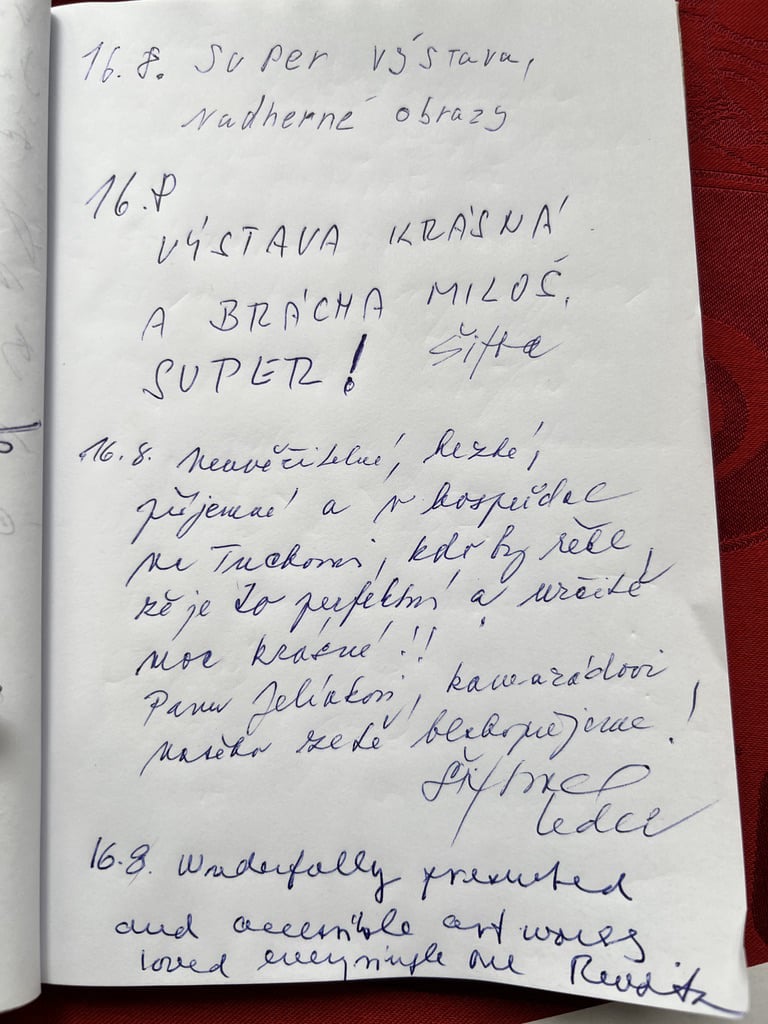 16.8. Super výstava,
Nadherné obrazy
16.8
VÝSTAVA KRÁSNÁ
A BRÁCHA MILOŠ.
SUPER!
16.8. Neuvěřitelné, hezké,
příjemné a v hospůdce
Na Tuchomi, kdo by řekl,
že je to perfektní a určitě
moc krásné!!
Panu Jelínkovi, kamarádovi
našeho zetě blahopřejeme!
16.8. Wonderfully presented
and accessible art works
loved every single one